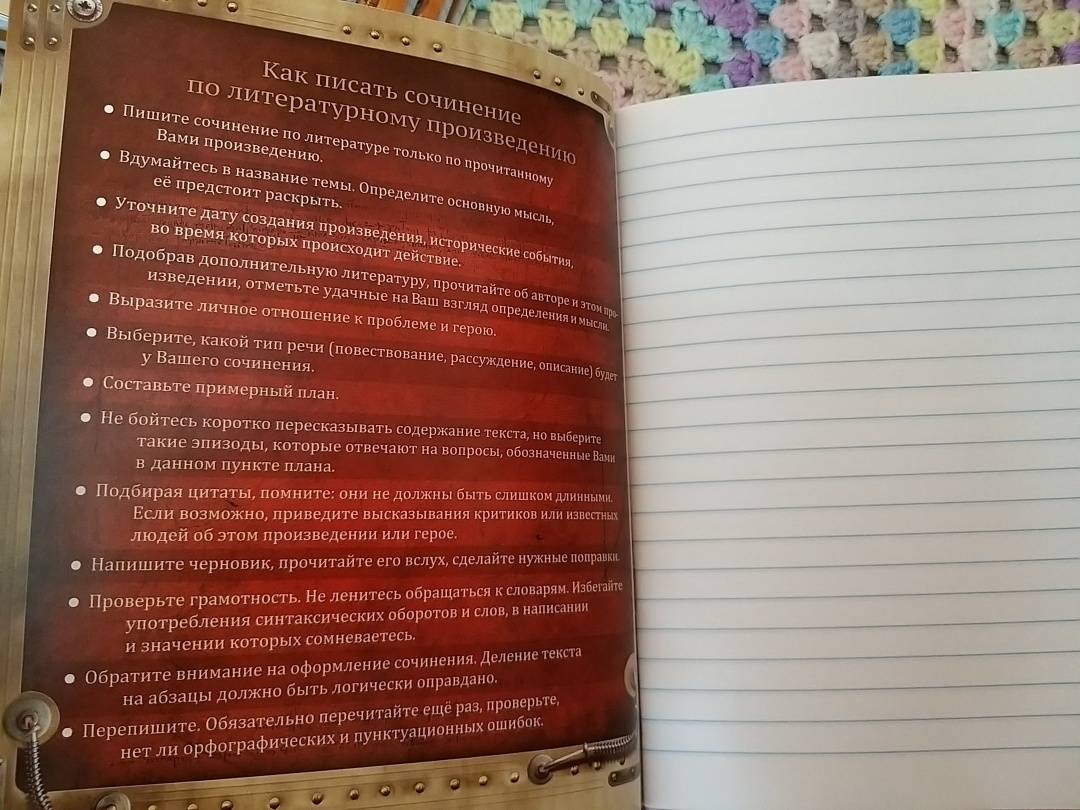 Как писать сочинение
по литературному произведению
● Пишите сочинение по литературе только по прочитанному
Вами произведению.
● Вдумайтесь в название темы. Определите основную мысль,
её предстоит раскрыть.
● Уточните дату создания произведения, исторические события,
во время которых происходит действие.
● Подобрав дополнительную литературу, прочитайте об авторе и этом про-
изведении, отметьте удачные на Ваш взгляд определения и мысли.
● Выразите личное отношение к проблеме и герою.
● Выберите, какой тип речи (повествование, рассуждение, описание) будет
у Вашего сочинения.
● Составьте примерный план.
● Не бойтесь коротко пересказывать содержание текста, но выберите
такие эпизоды, которые отвечают на вопросы, обозначенные Вами
в данном пункте плана.
● Подбирая цитаты, помните: они не должны быть слишком длинными.
Если возможно, приведите высказывания критиков или известных
людей об этом произведении или герое.
● Напишите черновик, прочитайте его вслух, сделайте нужные поправки.
● Проверьте грамотность. Не ленитесь обращаться к словарям. Избегайте
употребления синтаксических оборотов и слов, в написании
и значении которых сомневаетесь.
● Обратите внимание на оформление сочинения. Деление текста
на абзацы должно быть логически оправдано.
● Перепишите. Обязательно перечитайте ещё раз, проверьте,
нет ли орфографических и пунктуационных ошибок.